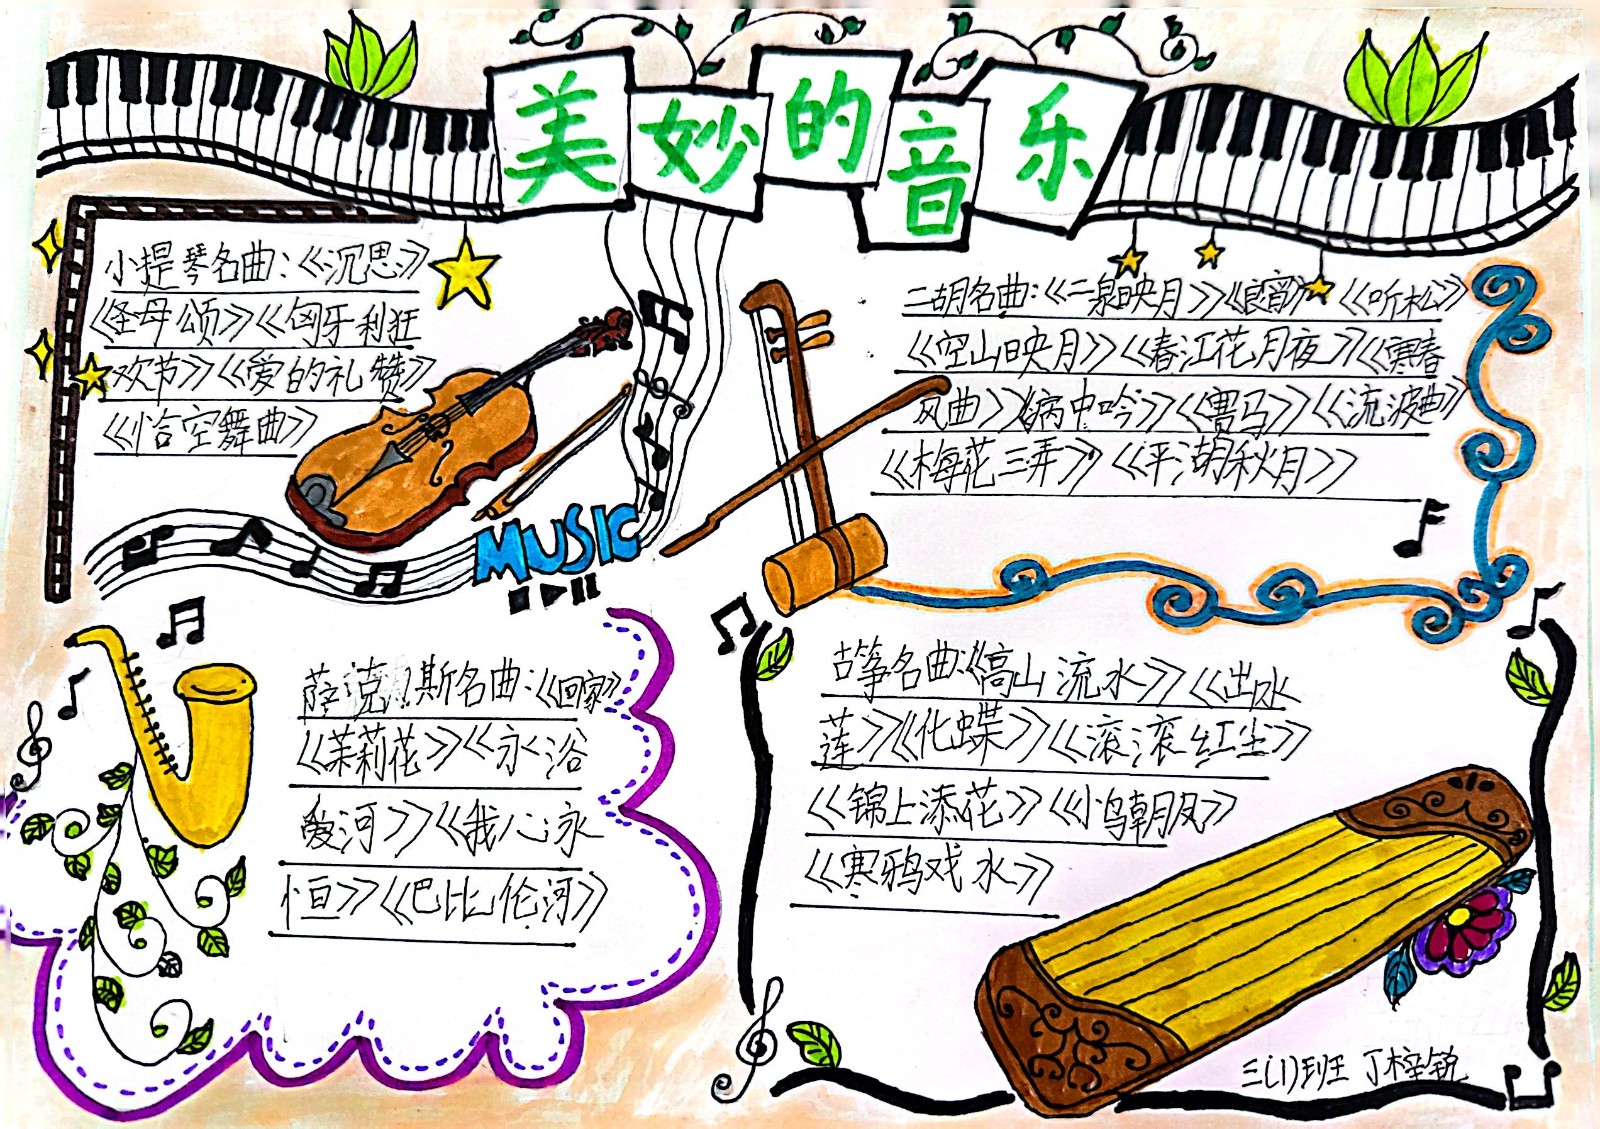 美妙的音乐
小提琴名曲:《沉思》
《圣母颂》《匈牙利狂
欢节》《爱的礼赞》
《恰空舞曲》
MUSIC
二胡名曲:《二泉映月》《良宵》《听松》
《空山映月》《春江花月夜》《寒春
风曲》《病中吟》《赛马》《流波曲》
《梅花三弄》《平湖秋月》
萨克斯名曲:《回家》
《茉莉花》《永浴
爱河》《我心永
恒》《巴比伦河》
古筝名曲:《高山流水》《出水
莲》《化蝶》《滚滚红尘》
《锦上添花》《小鸟朝凤》
《寒鸦戏水》
三(1)班 丁梓锐